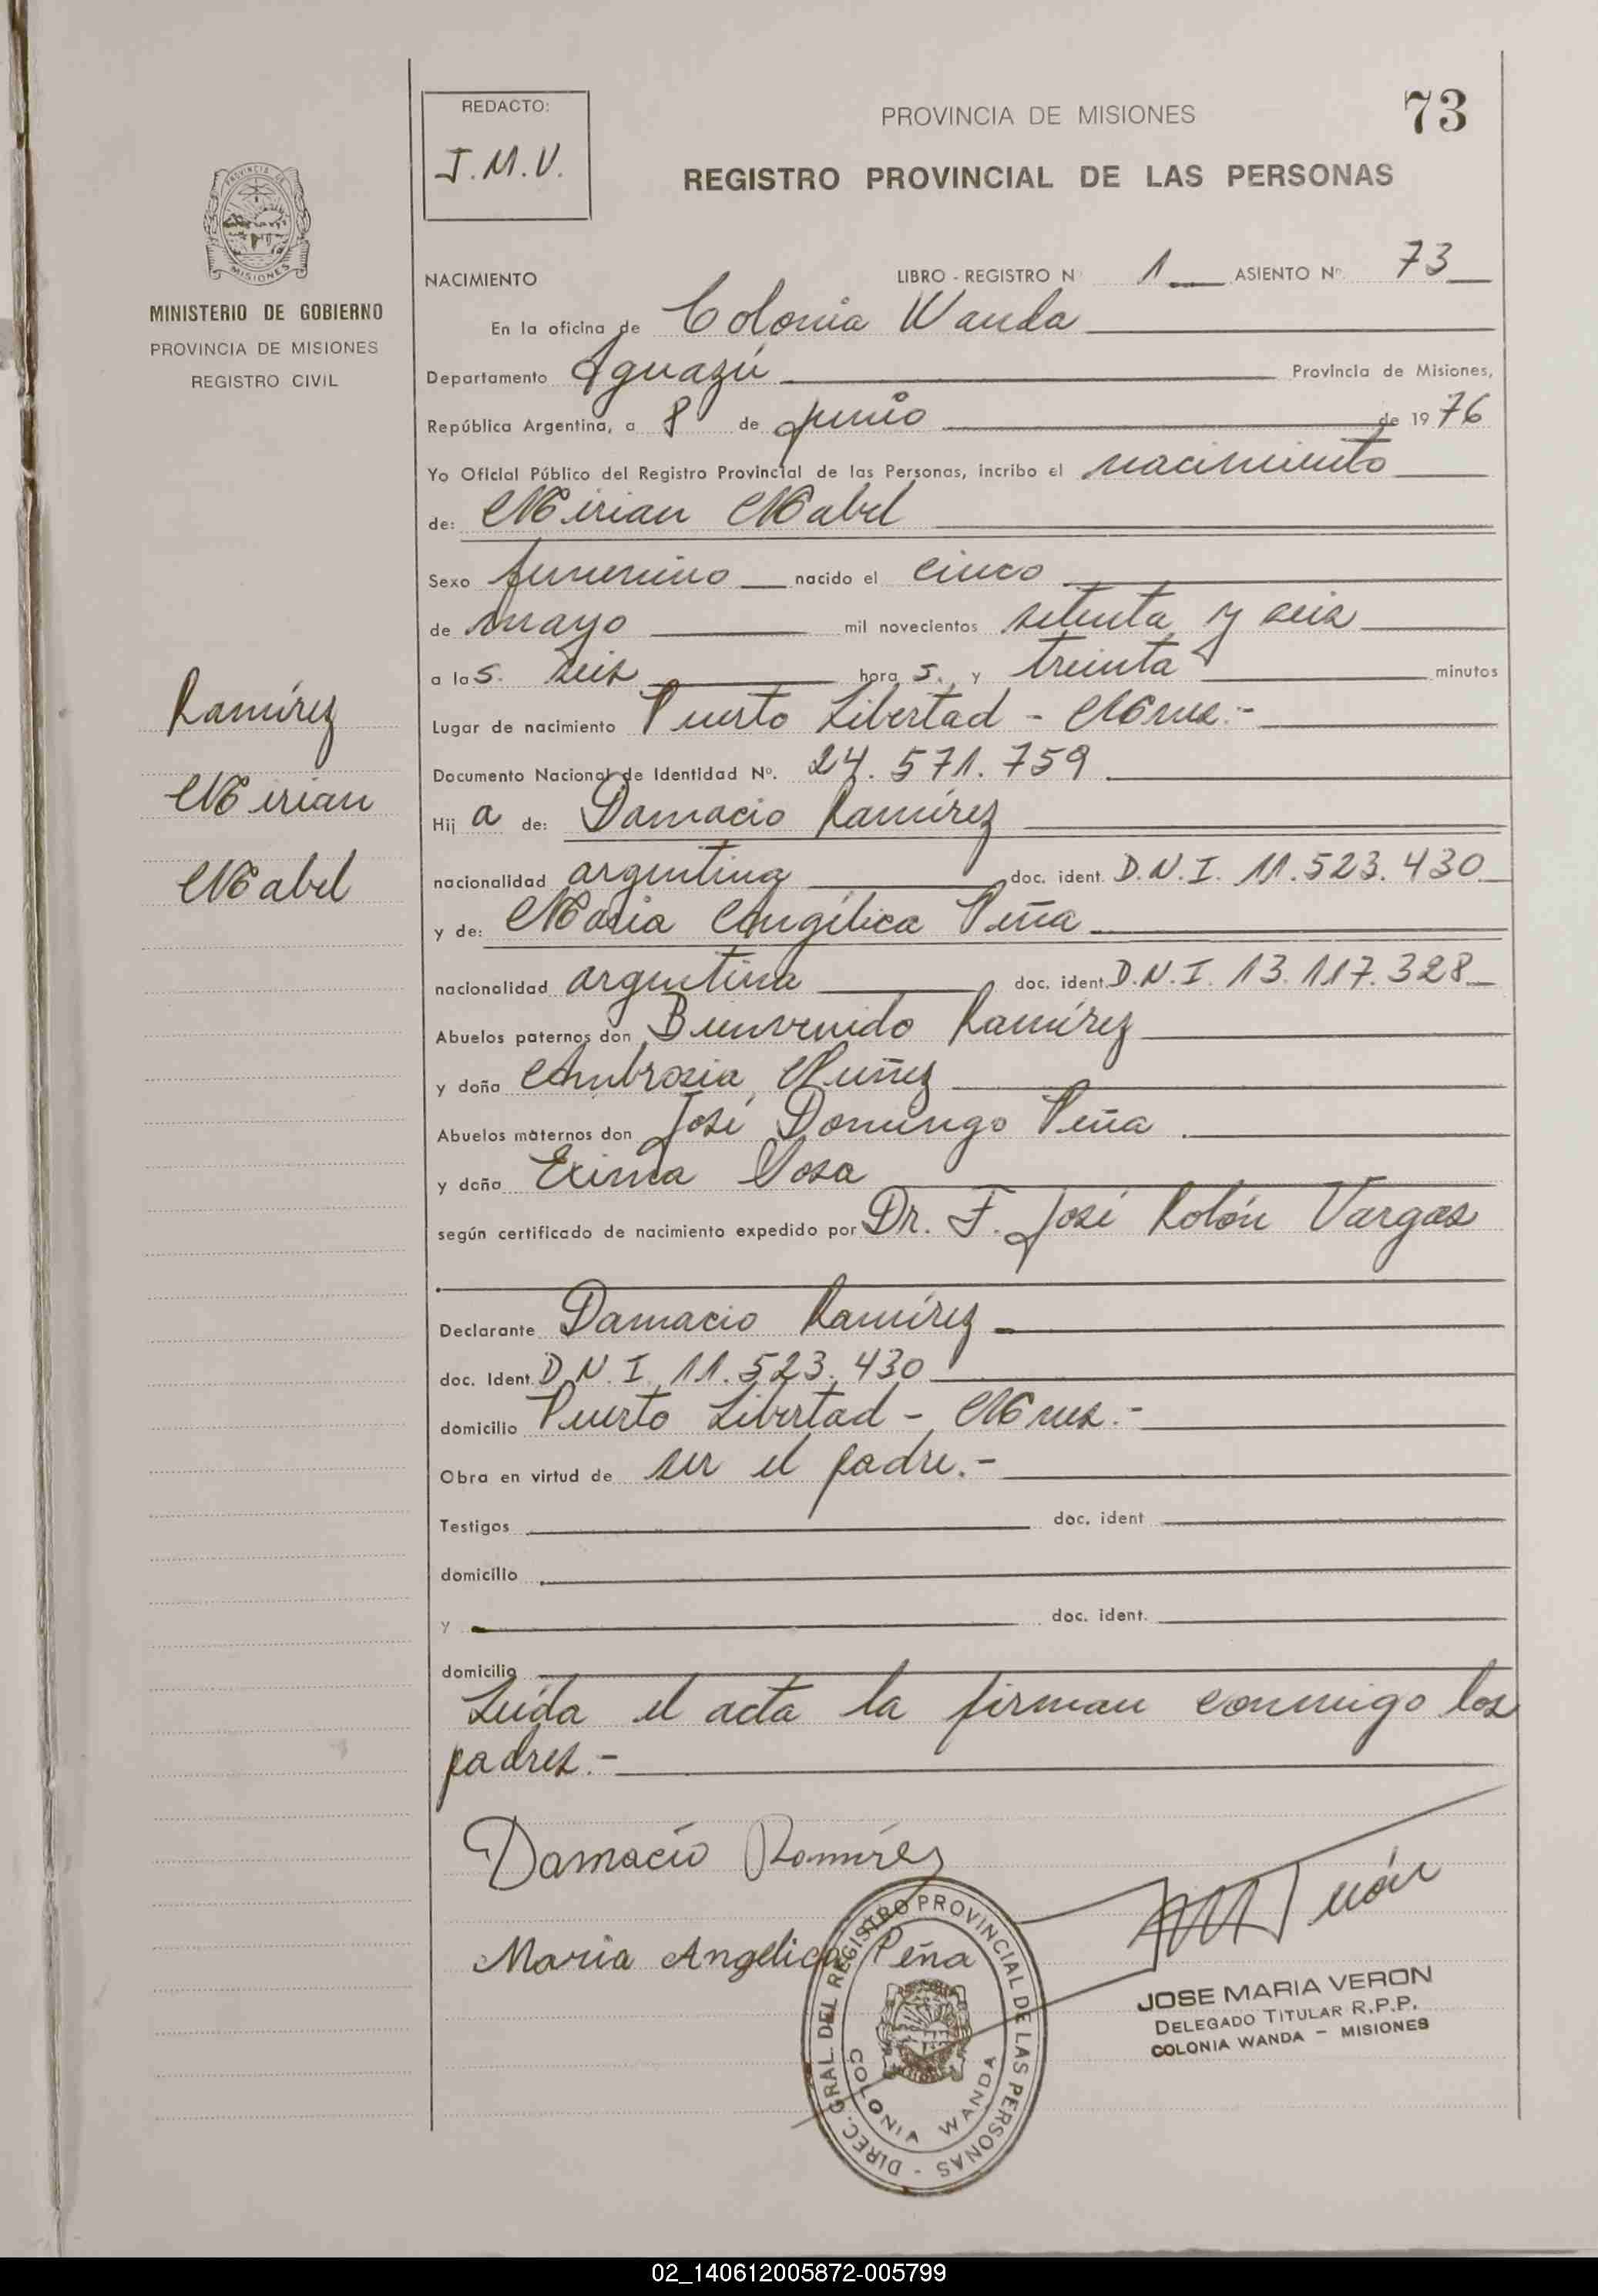 REDACTO:
J.M.V.
PROVINCIA DE MISIONES
73
REGISTRO PROVINCIAL DE LAS PERSONAS
PROVINCIA DE
MISIONES
MINISTERIO DE GOBIERNO
PROVINCIA DE MISIONES
REGISTRO CIVIL
NACIMIENTO LIBRO - REGISTRO Nº 1 ASIENTO Nº 73
En la oficina de Colonia Wanda
Departamento Iguazú Provincia de Misiones,
República Argentina, a 8 de junio de 1976
Yo Oficial Público del Registro Provincial de las Personas, incribo el nacimiento
de: Mirian Mabel
Sexo femenino nacido el cinco
de mayo mil novecientos setenta y seis
a las. seis horas. y treinta minutos
Lugar de nacimiento Puerto Libertad - Mnes.-
Documento Nacional de Identidad Nº. 24.571.759
Hija de: Damacio Ramírez
nacionalidad argentina doc. ident. D.N.I. 11.523.430
y de: María Angélica Peña
nacionalidad argentina doc. ident. D.N.I. 13.117.328
Abuelos paternos don Bienvenido Ramírez
y doña Ambrosia Nuñez
Abuelos maternos don José Domingo Peña
y doña Sosa
según certificado de nacimiento expedido por Dr. F. José Rolón Vargas
Declarante Damacio Ramírez
doc. Ident. D.N.I. 11.523.430
domicilio Puerto Libertad - Mnes.-
Obra en virtud de ser el padre.-
Testigos doc. ident
domicilio
y doc. ident.
domicilio
Leída el acta la firman conmigo los
padres.-
Ramírez
Mirian
Mabel
Damacio Ramírez
Maria Angelica Peña
DIREC. GRAL. DEL REGISTRO PROVINCIAL DE LAS PERSONAS -
COLONIA WANDA
JOSE MARIA VERON
DELEGADO TITULAR R.P.P.
COLONIA WANDA - MISIONES
02_140612005872-005799